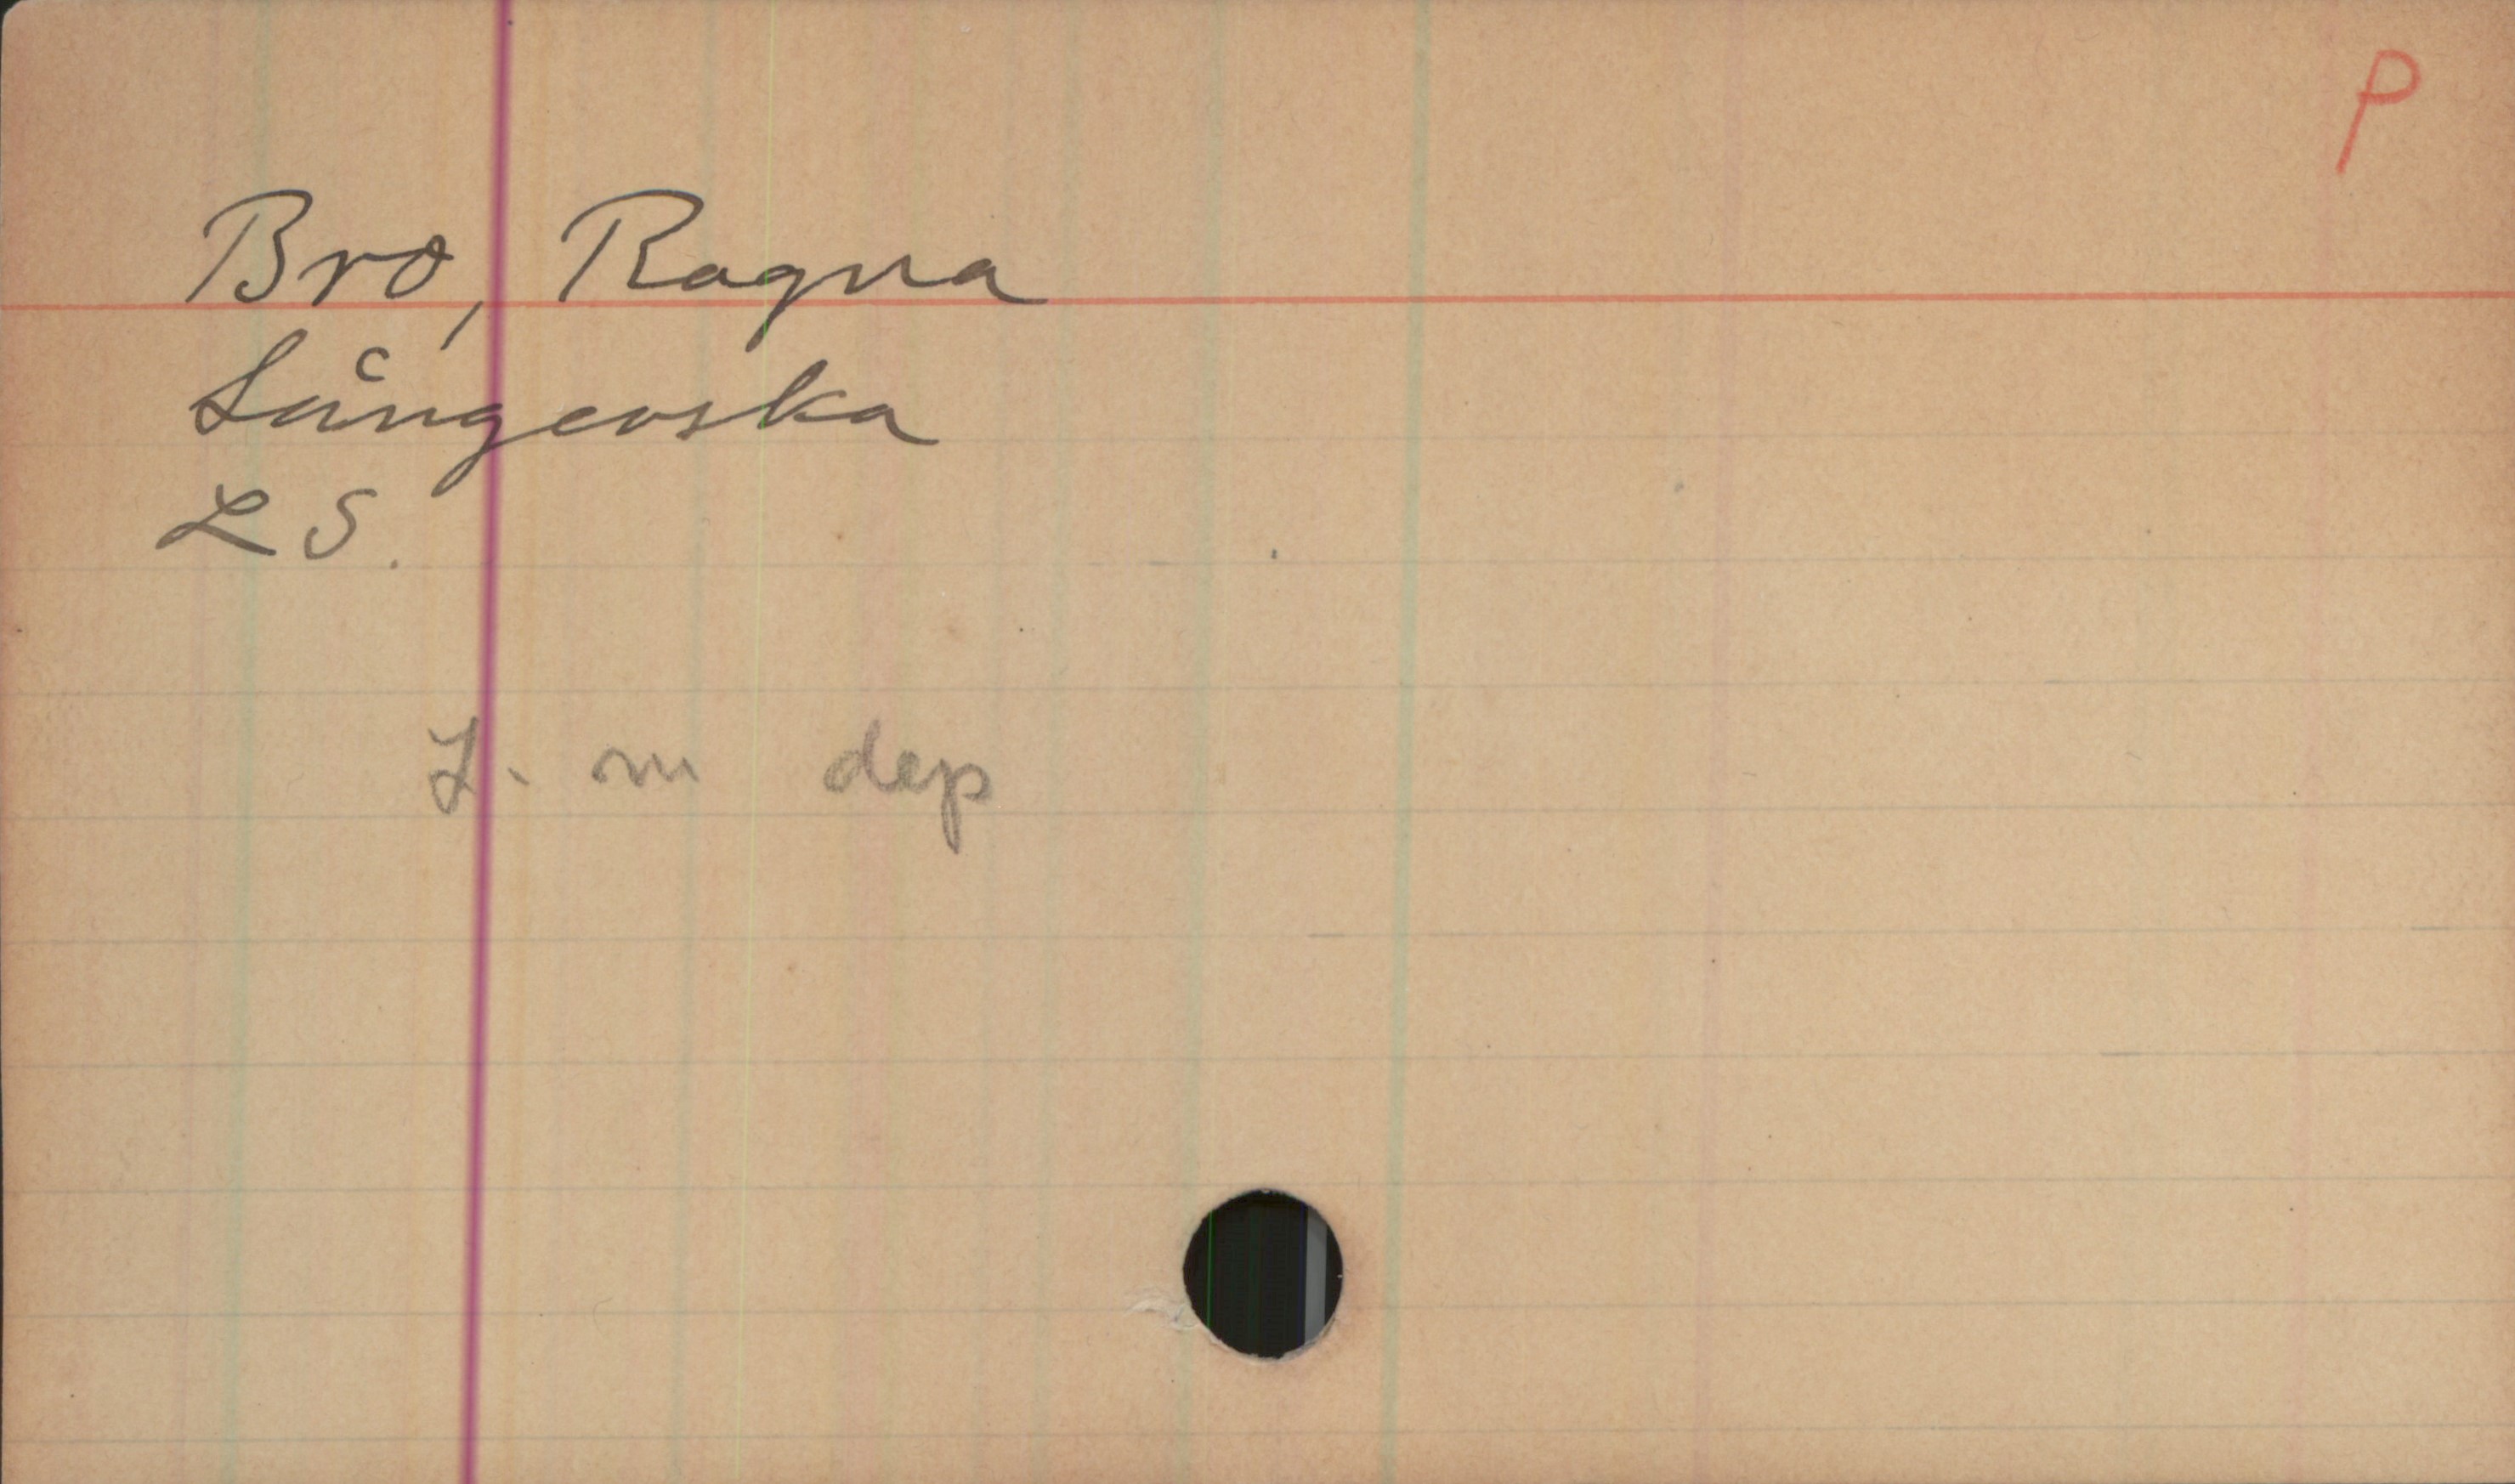 P
Bro, Ragna
Sångerska
L S.
L. m dep